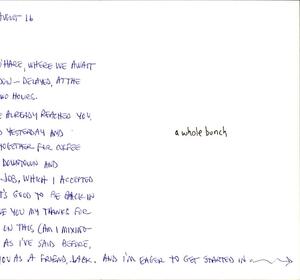 AUGUST 16
O'HARE, WHERE WE AWAIT
DON — DELAYED, AT THE
WO HOURS.
E ALREADY REACHED YOU,
D YESTERDAY AND
TOGETHER FOR COFFEE
DOWNTOWN AND
JOB, WHICH I ACCEPTED.
T'S GOOD TO BE BACK IN
VE YOU MY THANKS FOR
ON THIS (AM I MIXING
AS I'VE SAID BEFORE,
YOU AS A FRIEND, JACK. AND I'M EAGER TO GET STARTED IN
a whole bunch